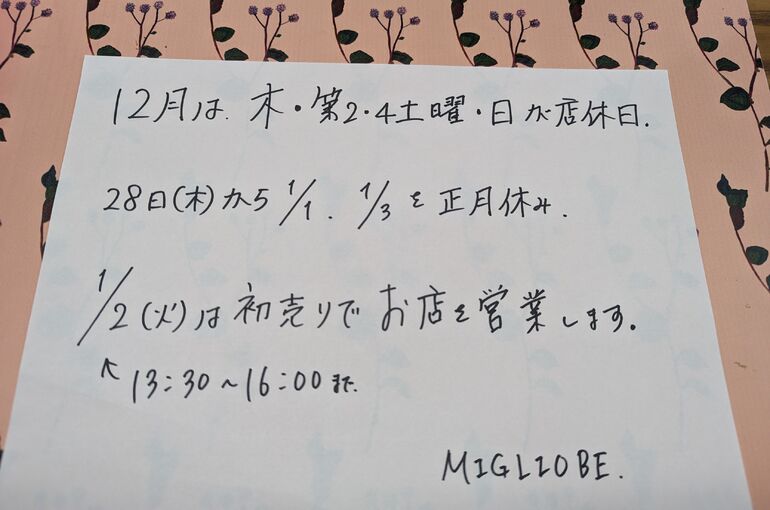 12月は、木・第2・4土曜・日が店休日.
28日(木)から1/1、1/3を正月休み.
1/2(火)は初売りでお店を営業します。
↖13:30～16:00まで.
MIGLIOBE.